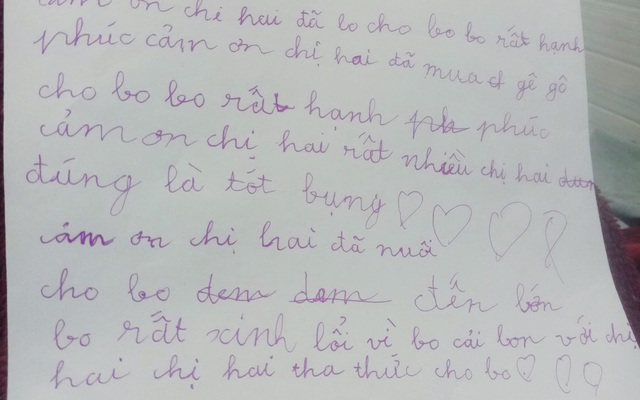 cảm ơn chị hai đã lo cho bo bo rất hạnh
phúc cảm ơn chị hai đã mua gê gô
cho bo bo rất hạnh phúc
cảm ơn chị hai rất nhiều chị hai
đúng là tốt bụng
cảm ơn chị hai đã nuôi
cho bo đến lớn
bo rất xinh lổi vì bo cải bon với chị
hai chị hai tha thức cho bo